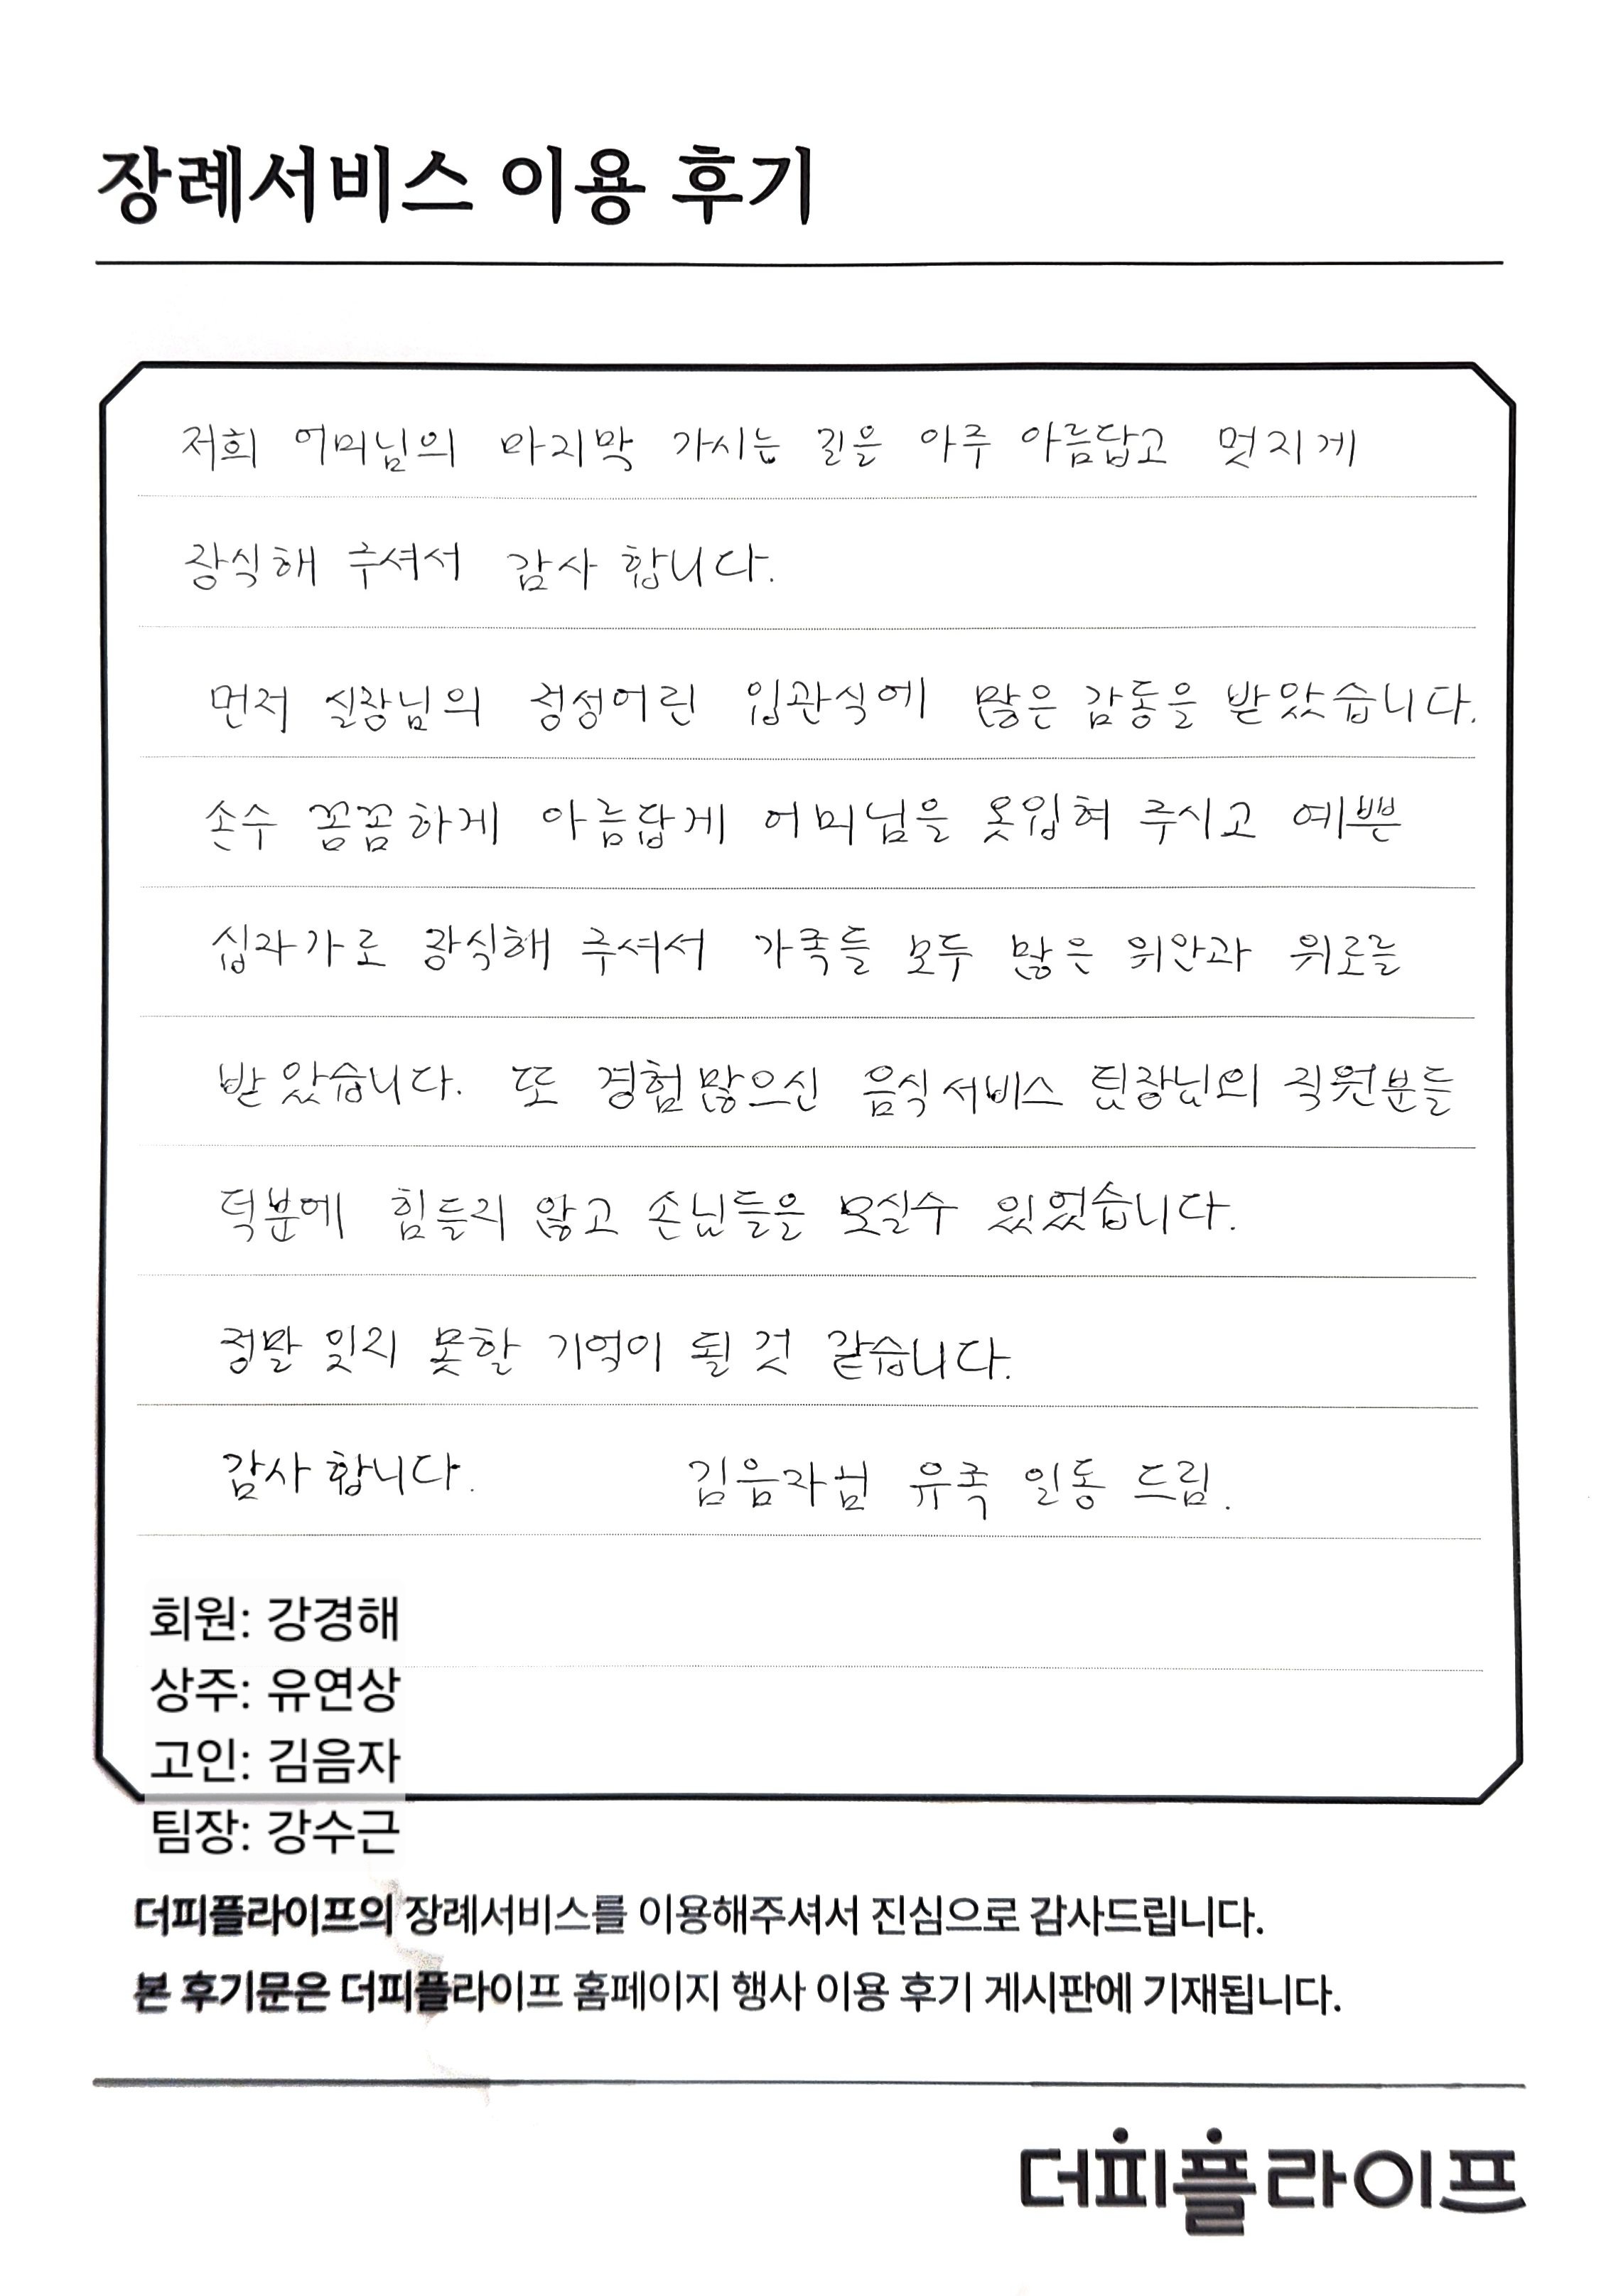 장례서비스 이용 후기
저희 어머님의 마지막 가시는 길을 아주 아름답고 멋지게
장식해 주셔서 감사 합니다.
먼저 실장님의 정성어린 입관식에 많은 감동을 받았습니다.
손수 꼼꼼하게 아름답게 어머님을 옷입혀 주시고 예쁜
십자가로 장식해 주셔서 가족들 모두 많은 위안과 위로를
받았습니다. 또 경험많으신 음식서비스 팀장님외 직원분들
덕분에 힘들지 않고 손님들을 모실수 있었습니다.
정말 잊지 못할 기억이 될 것 같습니다.
감사 합니다. 김음자님 유족 일동 드림.
회원: 강경해
상주: 유연상
고인: 김음자
팀장: 강수근
더피플라이프의 장례서비스를 이용해주셔서 진심으로 감사드립니다.
본 후기문은 더피플라이프 홈페이지 행사 이용 후기 게시판에 기재됩니다.
더피플라이프